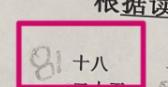 根据读
81 十八